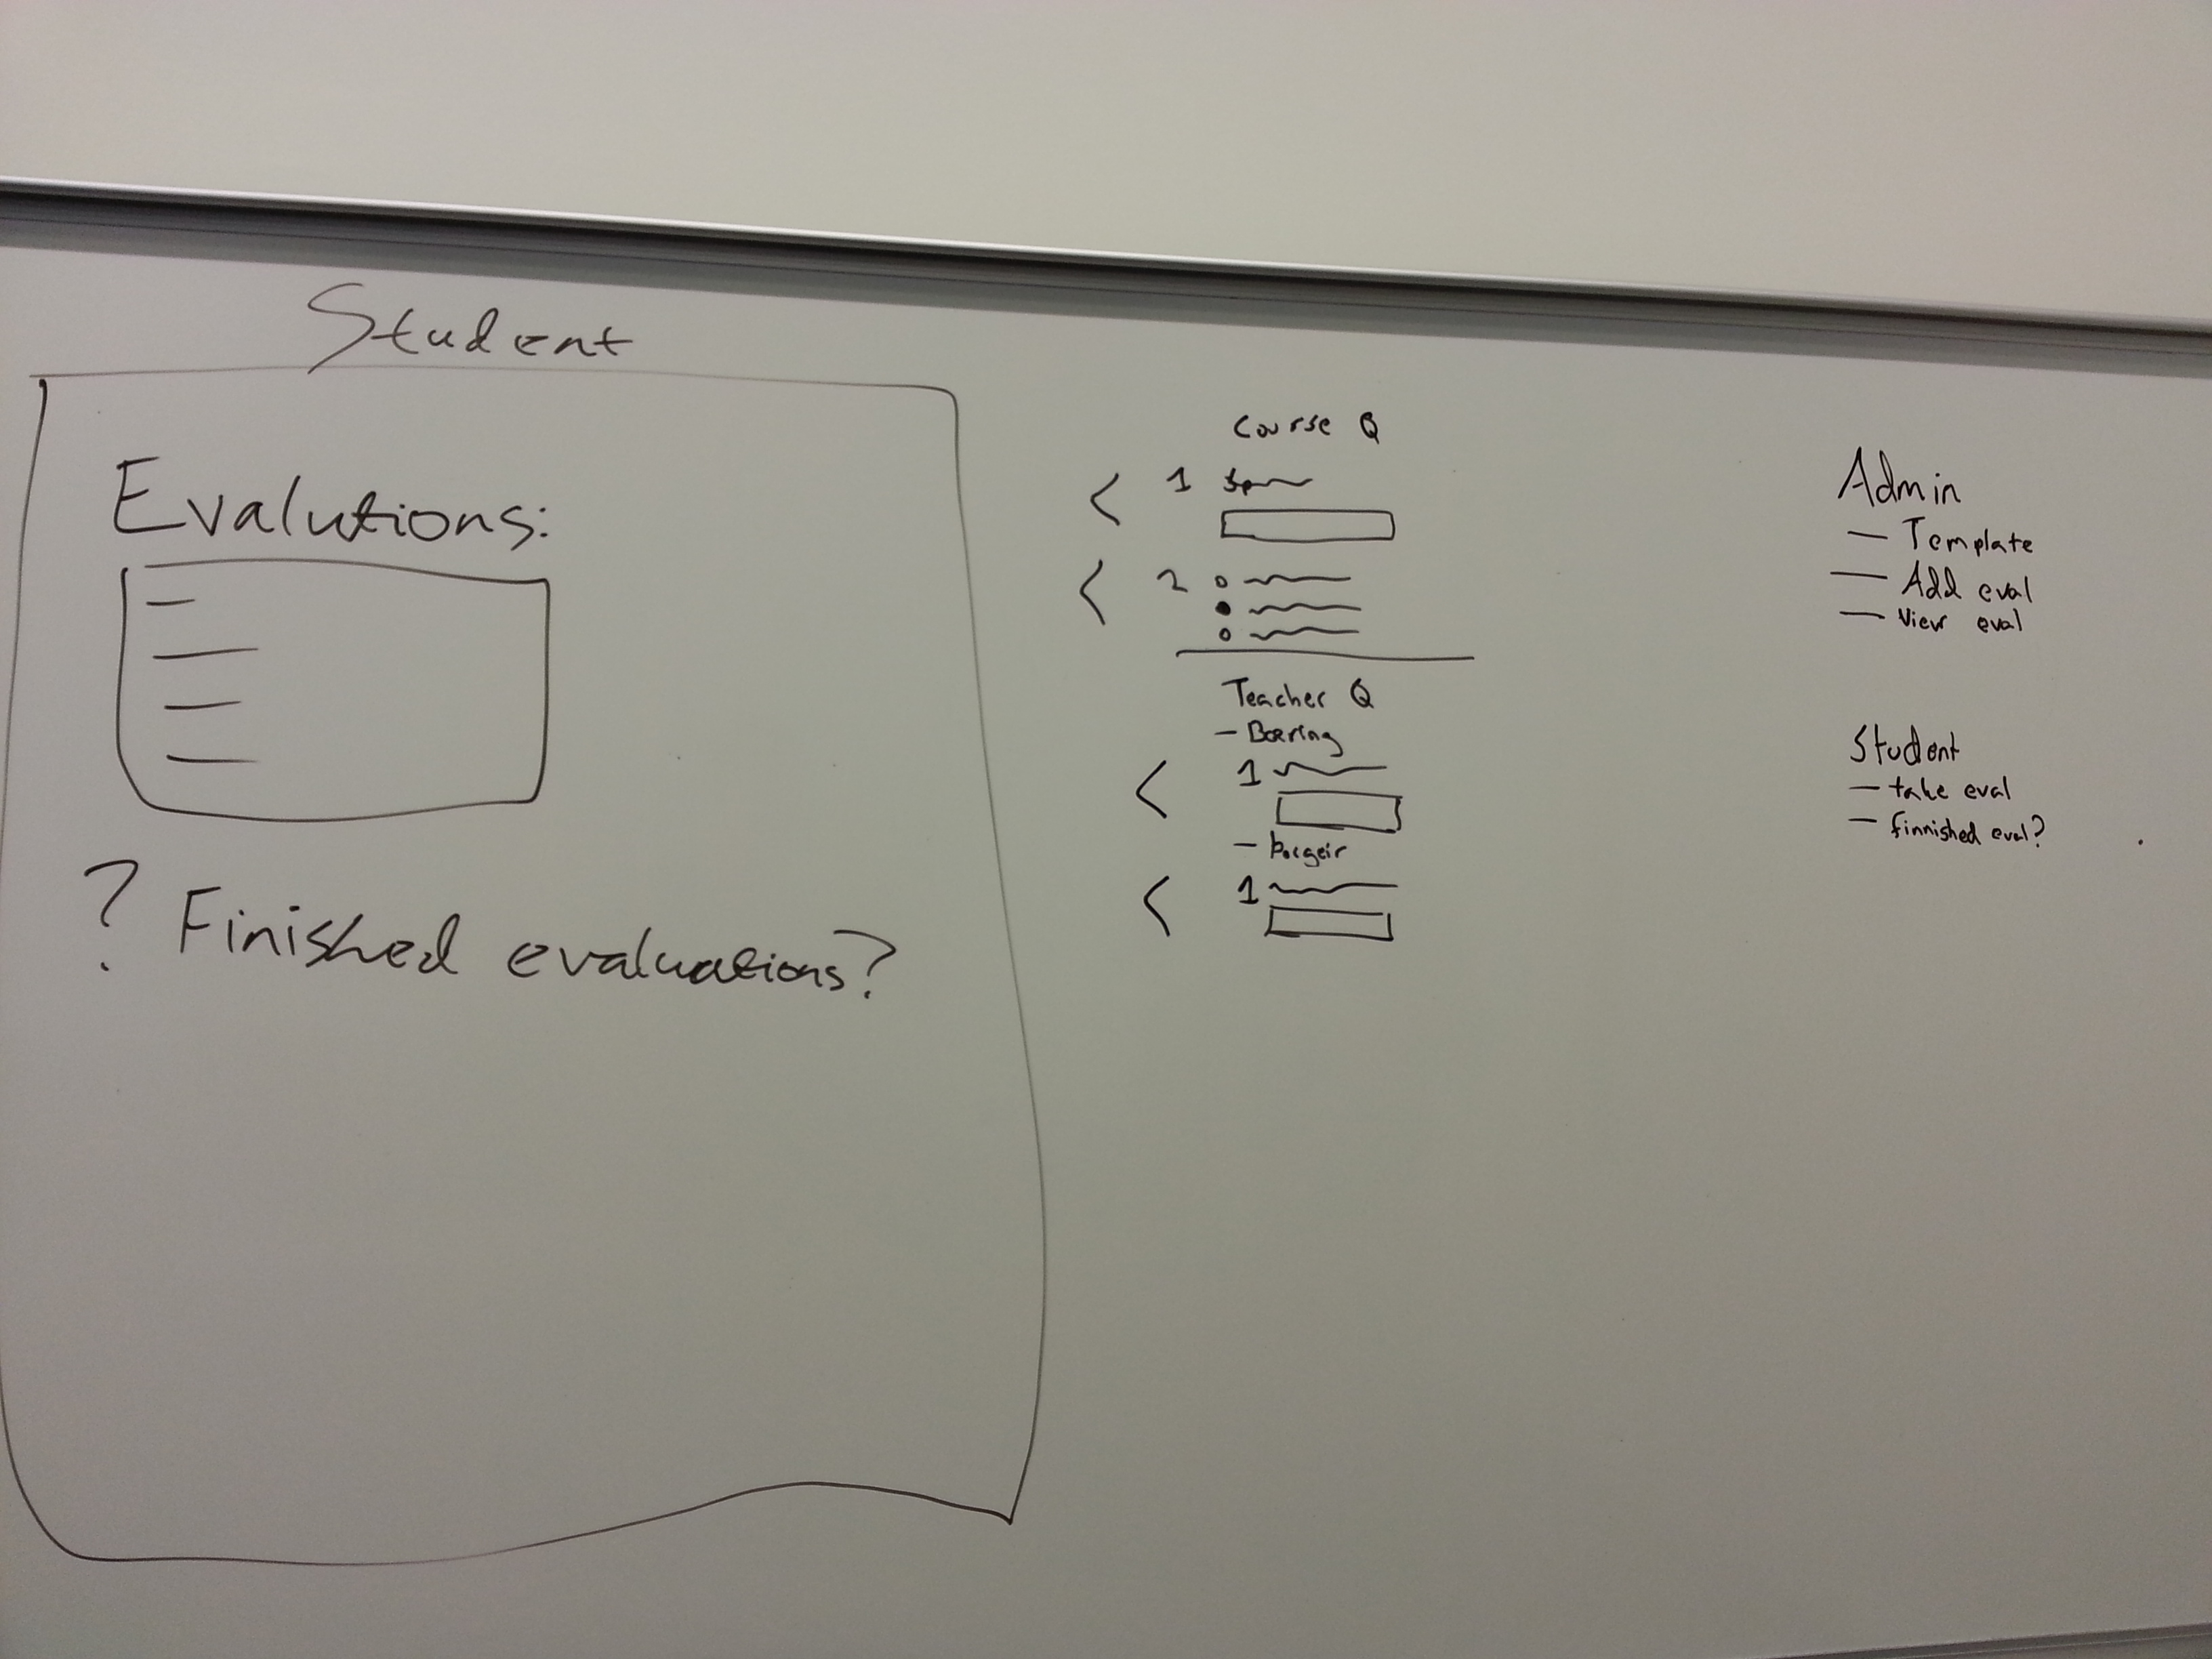 Student
Evalutions:
? Finished evaluations?
Course Q
1
2
Teacher Q
1
1
Admin
— Template
— Add eval
— View eval
Student
— take eval
— finnished eval?